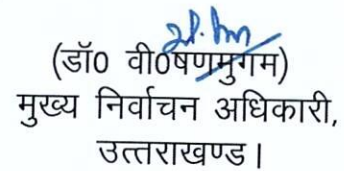 (डॉ0 वी0षणमुगम)
मुख्य निर्वाचन अधिकारी,
उत्तराखण्ड।